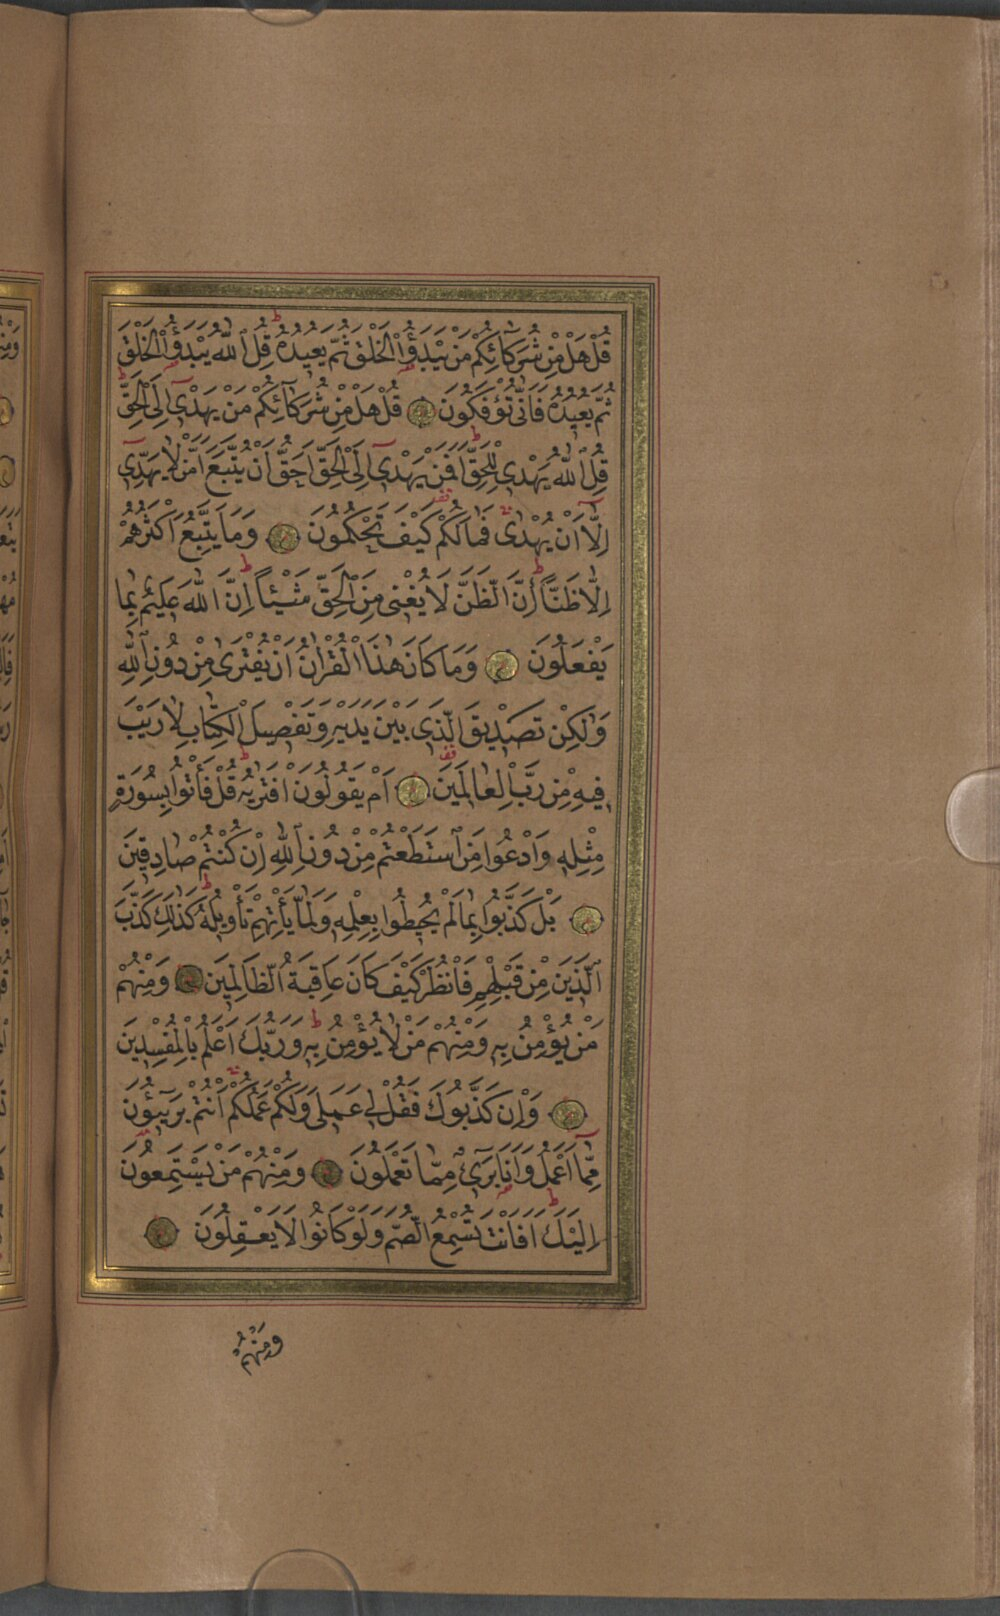 قُلْ هَلْ مِنْ شُرَكَائِكُمْ مَنْ يَبْدَؤُا الْخَلْقَ ثُمَّ يُعِيدُهُ قُلِ اللّٰهُ يَبْدَؤُا الْخَلْقَ
ثُمَّ يُعِيدُهُ فَاَنّٰى تُؤْفَكُونَ قُلْ هَلْ مِنْ شُرَكَائِكُمْ مَنْ يَهْدِى اِلَى الْحَقِّ
قُلِ اللّٰهُ يَهْدِى لِلْحَقِّ اَفَمَنْ يَهْدِى اِلَى الْحَقِّ اَحَقُّ اَنْ يُتَّبَعَ اَمَّنْ لَا يَهِدِّى
اِلَّا اَنْ يُهْدٰى فَمَا لَكُمْ كَيْفَ تَحْكُمُونَ وَمَا يَتَّبِعُ اَكْثَرُهُمْ
اِلَّا ظَنًّا اِنَّ الظَّنَّ لَا يُغْنِى مِنَ الْحَقِّ شَيْـًٔا اِنَّ اللّٰهَ عَلِيمٌ بِمَا
يَفْعَلُونَ وَمَا كَانَ هٰذَا الْقُرْاٰنُ اَنْ يُفْتَرٰى مِنْ دُونِ اللّٰهِ
وَلٰكِنْ تَصْدِيقَ الَّذِى بَيْنَ يَدَيْهِ وَتَفْصِيلَ الْكِتَابِ لَا رَيْبَ
فِيهِ مِنْ رَبِّ الْعَالَمِينَ اَمْ يَقُولُونَ افْتَرٰيهُ قُلْ فَأْتُوا بِسُورَةٍ
مِثْلِهِ وَادْعُوا مَنِ اسْتَطَعْتُمْ مِنْ دُونِ اللّٰهِ اِنْ كُنْتُمْ صَادِقِينَ
بَلْ كَذَّبُوا بِمَا لَمْ يُحِيطُوا بِعِلْمِهِ وَلَمَّا يَأْتِهِمْ تَأْوِيلُهُ كَذٰلِكَ كَذَّبَ
الَّذِينَ مِنْ قَبْلِهِمْ فَانْظُرْ كَيْفَ كَانَ عَاقِبَةُ الظَّالِمِينَ وَمِنْهُمْ
مَنْ يُؤْمِنُ بِهِ وَمِنْهُمْ مَنْ لَا يُؤْمِنُ بِهِ وَرَبُّكَ اَعْلَمُ بِالْمُفْسِدِينَ
وَاِنْ كَذَّبُوكَ فَقُلْ لِى عَمَلِى وَلَكُمْ عَمَلُكُمْ اَنْتُمْ بَرِيٓـُٔونَ
مِمَّا اَعْمَلُ وَاَنَا بَرِىٓءٌ مِمَّا تَعْمَلُونَ وَمِنْهُمْ مَنْ يَسْتَمِعُونَ
اِلَيْكَ اَفَاَنْتَ تُسْمِعُ الصُّمَّ وَلَوْ كَانُوا لَا يَعْقِلُونَ
وَمِنْهُمْ